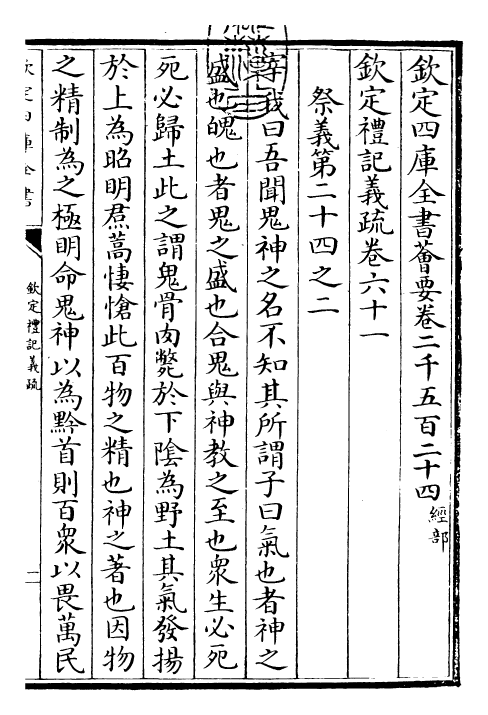 欽定四庫全書薈要卷二千五百二十四 經部
欽定禮記義疏卷六十一
祭義第二十四之二
宰我曰吾聞鬼神之名不知其所謂子曰氣也者神之
盛也魄也者鬼之盛也合鬼與神教之至也衆生必死
死必歸土此之謂鬼骨肉斃於下陰為野土其氣發揚
於上為昭明焄蒿悽愴此百物之精也神之著也因物
之精制為之極明命鬼神以為黔首則百衆以畏萬民
欽定四庫全書
欽定禮記義疏
一